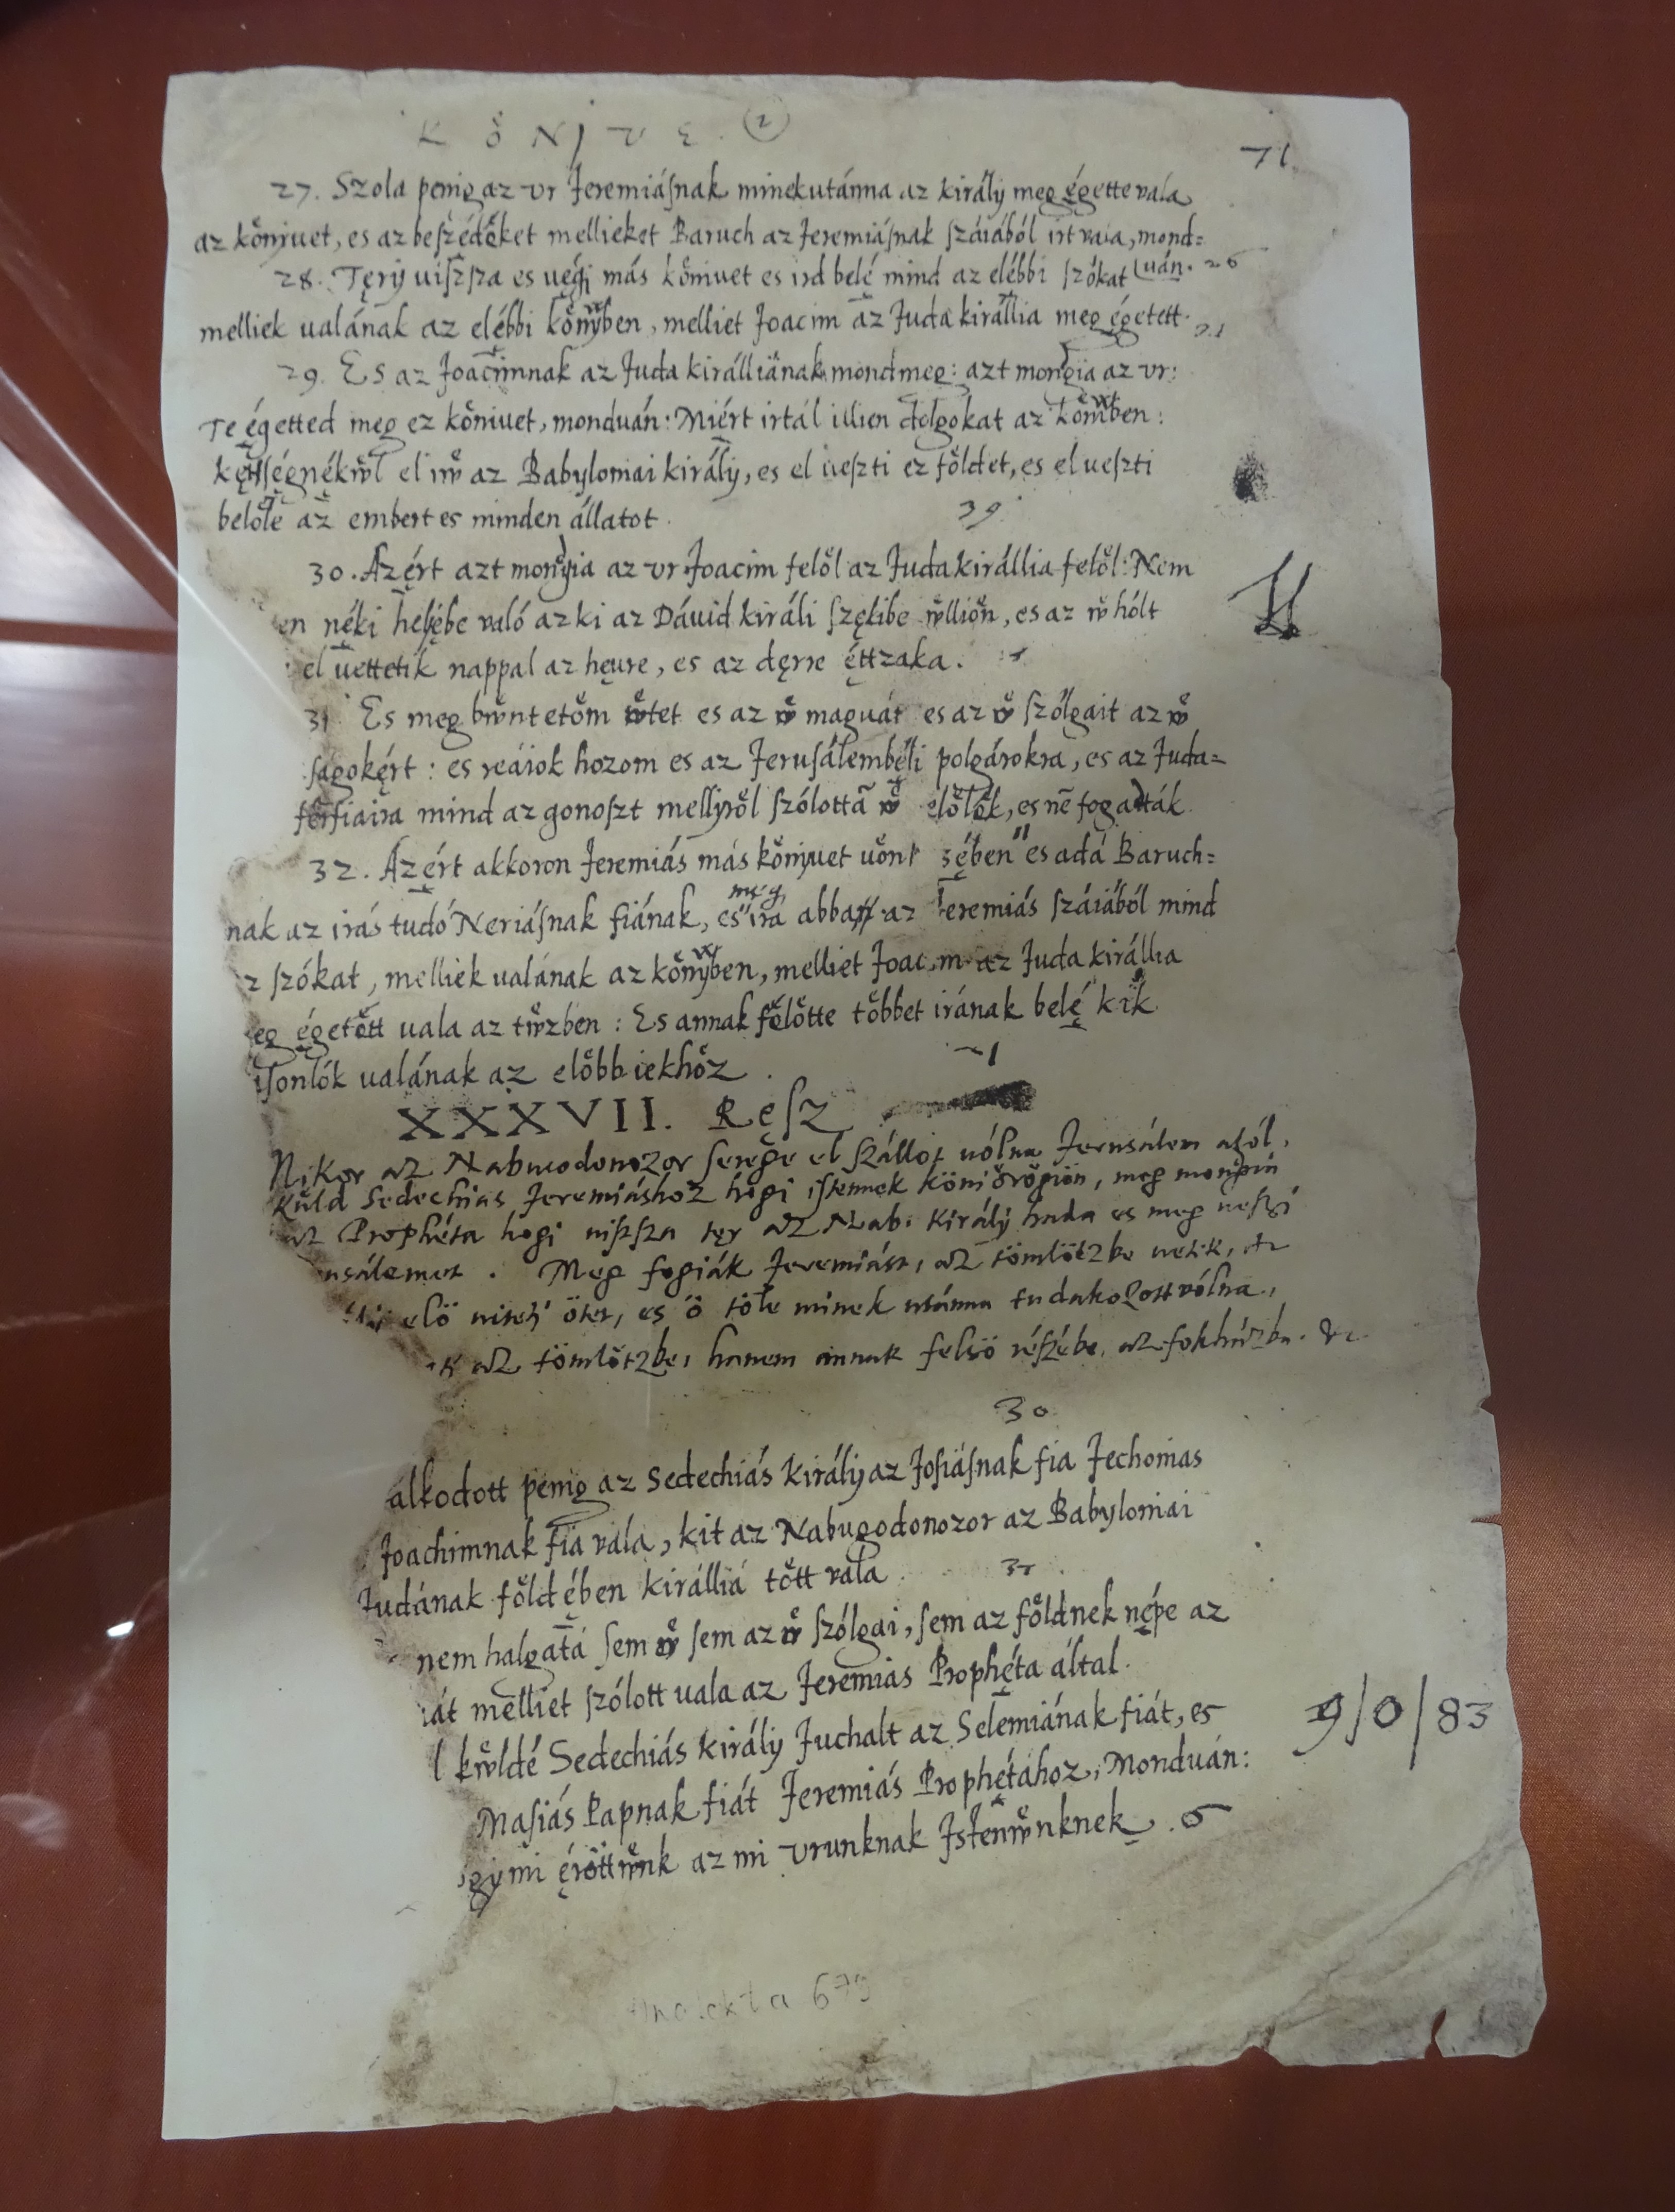 KŐNJVE. 2
71.
27. Szola penig az vr Jeremiáſnak minekutánna az királÿ meg égette vala
az kőnÿuet, es az beſzédőket mellieket Baruch az Jeremiáſnak ſzáiából irt vala, mond=
28. Tęrÿ uiſzſza es uégÿ más kőniuet es ird belé mind az elébbi ſzókat (uán. 26
melliek ualának az elébbi kőnÿben, melliet Joacim az Juda királlia meg égetett.
29. Es az Joacimnak az Juda királliának mond meg: azt mongia az vr:
Te égetted meg ez kőniuet, monduán: Miért irtál illien dolgokat az
el az Babyloniai királÿ, es el ueſzti ez főldet, es el ueſzti
belőle az embert es minden állatot.
39
30. Azért azt mongia az vr Joacim felől az Juda királlia felől: Nem
en néki helÿébe való az ki az Dáuid királi ſzękibe ẘlliőn, es az ẘ hólt
el uettetik nappal az hęure, es az dęrre éttzaka.
31 Es meg bẘntetőm ẘtet es az ẘ maguát es az ẘ ſzólgait az ẘ
ſagokért: es reáiok hozom es az Jeruſálembéli polgárokra, es az Juda=
férfiaira mind az gonoſzt mellÿről ſzólottā ẘ előlők, es nē fogadták.
32. Azért akkoron Jeremiás más kőnÿuet uőn ſébenʺ es adá Baruch=
még
nak az irás tudó Neriáſnak fiának, esʺ ira abba az Jeremiás ſzáiából mind
z ſzókat, melliek ualának az kőnÿben, melliet Joacim az Juda királlia
eg égetőtt uala az tẘzben: Es annak fölőtte tőbbet irának belé kik
ſonlók ualának az előbbiekhőz.
XXXVII. Ręſz
Mikor az Nabucodonozor ſerege el ſzállot uólna Jeruſálem alól,
Küld Sedechias Jeremiáshoz hogi iſtennek kőniőrőgiőn, meg mongia
az Prophéta hogi uiſzſza tęr az Nab. királÿ hada es meg ueſzi
uſálemet. Meg fogiák Jeremiást, az tömlötzbe uetik, &c
elö öter, es ö töle minek utánna tudakozott vólna,
az tömlötzbe, hanem annak felsö réſzébe, az fokházba. &c.
30
álkodott penig az Sedechiás királÿ az Joſiáſnak fia Jechonias
Joachimnak fia vala, kit az Nabugodonozor az Babyloniai
Judának főldében királliá tőtt vala.
nem halgatá ſem ẘ ſem az ẘ ſzólgai, ſem az főldnek népe az
át melliet ſzólott uala az Jeremias Prophéta által.
l kẘldé Sedechiás királÿ Juchalt az Selemiának fiát, es
Maſiás Papnak fiát Jeremiás Prophétához, Monduán:
gÿ mi érőttẘnk az mi vrunknak Jſtenẘnknek.
9/0/83
Analekta 679